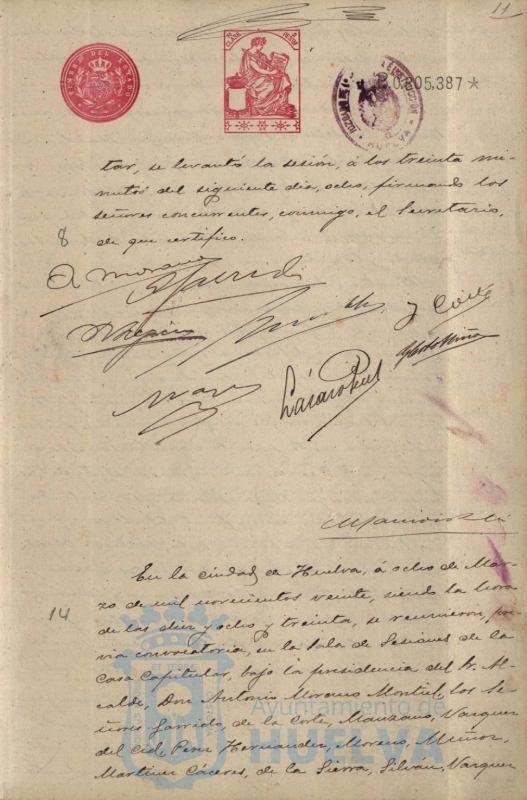 11
TIMBRE DEL ESTADO
CLASE 8ª PESETA
INSTRUCCION HUELVA
B.0.805,387*
tar, se levantó la sesión, á los treinta mi-
nutos del siguiente dia, ocho, firmando los
señores concurrentes, conmigo, el Secretario,
8
de que certifico.
A Moreno
y Corte
Lázaro Pérez
14
En la ciudad de Huelva, á ocho de Mar-
zo de mil novecientos veinte, siendo la hora
de las diez y ocho y treinta, se reunieron, pre-
via convocatoria, en la Sala de Sesiones de la
Casa Capitular, bajo la presidencia del Sr. Al-
calde, Don Antonio Moreno Montiel, los Se-
ñores Garrido, de la Corte, Manzano, Vazquez
del Cid, Perez Hernandez, Moreno, Muñoz,
Martinez Cáceres, de la Sierra, Silván, Vazquez
Ayuntamiento de
HUELVA